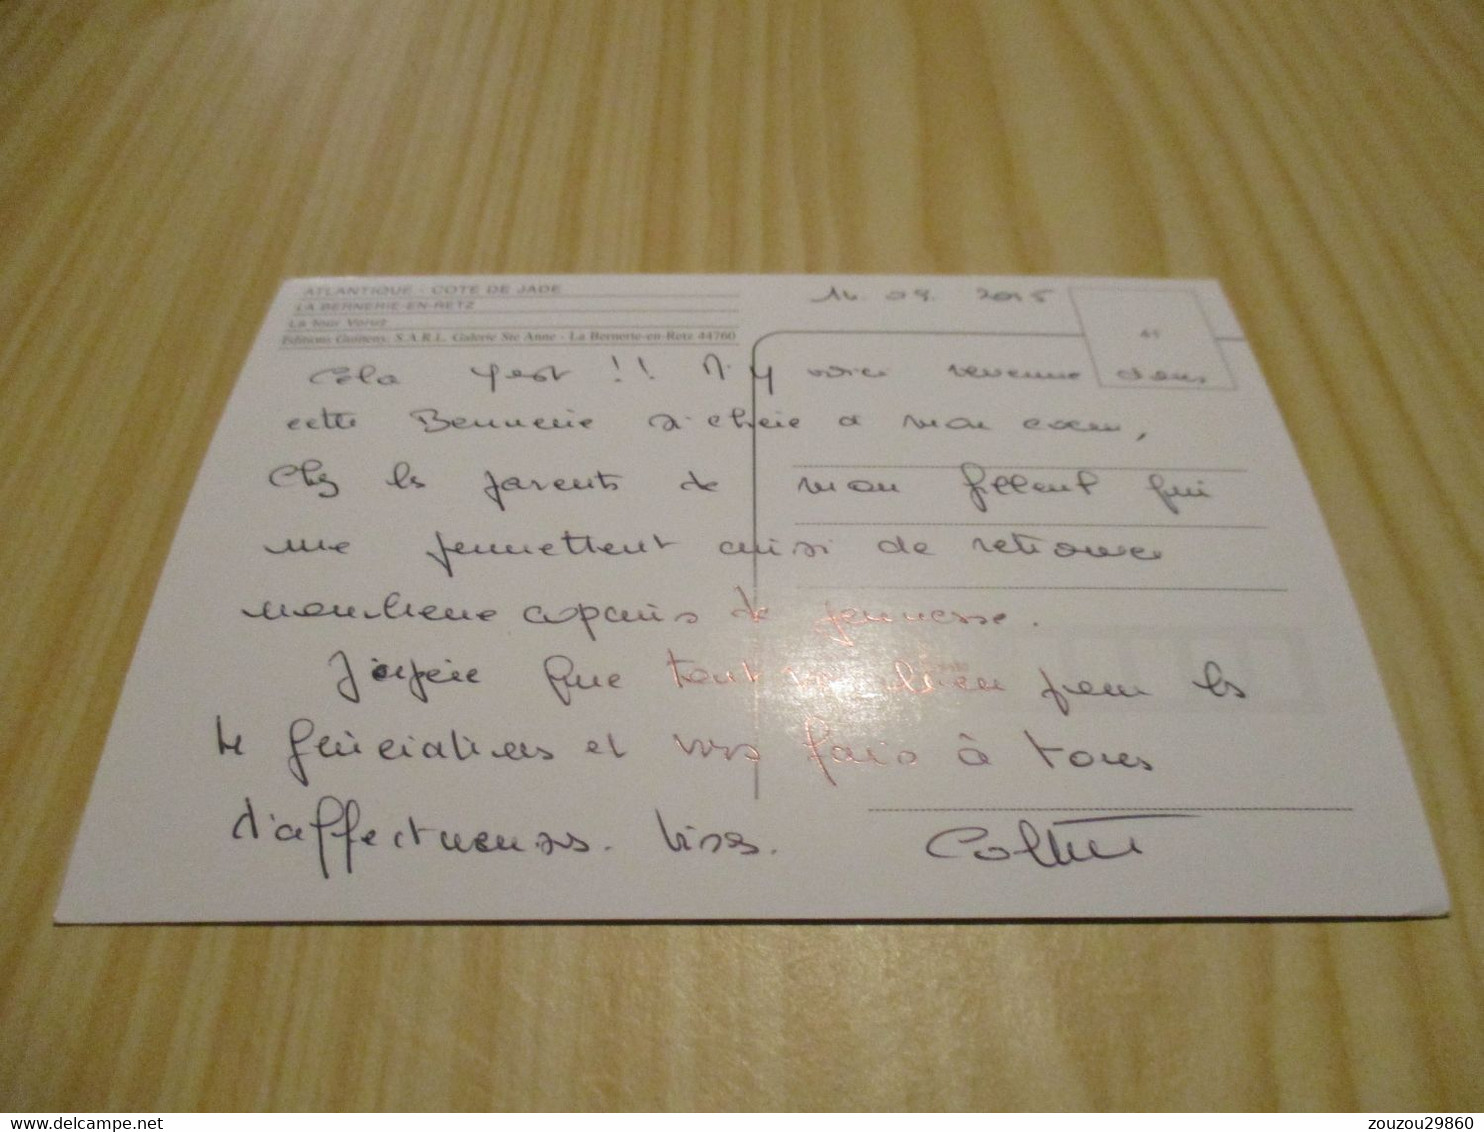 ATLANTIQUE - COTE DE JADE
LA BERNERIE-EN-RETZ
La tour Voruz
Editions Guitteny, S.A.R.L. Galerie Ste Anne - La Bernerie-en-Retz 44760
2015
!! M'y voici revenue dans
cette Bernerie si chère à mon coeur,
Chez les parents de mon filleul qui
me permettent ainsi de retrouver
copains de jeunesse.
J'espère que tout va bien pour les
4 générations et vous fais à tous
d'affectueuses bises.
zouzou29860